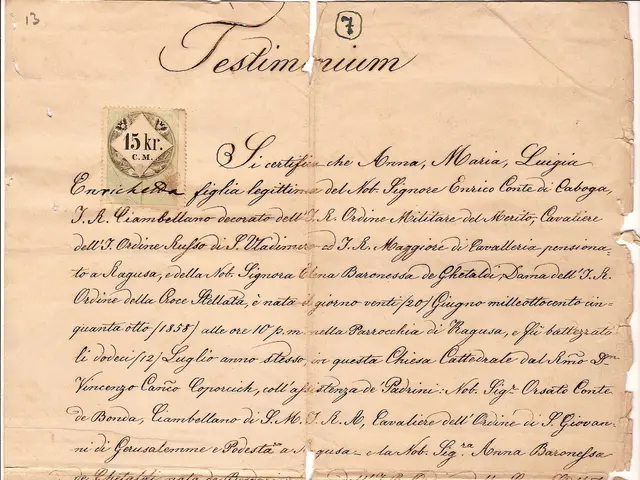 13
7
Testimonium
15 kr.
C. M.
Si certifica che Anna, Maria, Luigia
Enrichetta figlia legittima del Nob. Signore Enrico Conte di Caboga,
I. R. Ciambellano decorato dell'I. R. Ordine Militare del Merito, Cavaliere
dell'I. Ordine Russo di S. Vladimiro ed I. R. Maggiore di Cavalleria pensiona-
to a Ragusa, e della Nob. Signora Elena Baronessa de Ghetaldi, Dama dell'I. R.
Ordine della Croce Stellata, è nata il giorno venti /20/ Giugno milleottocento cin-
quanta otto /1858/ alle ore 10 p. m. nella Parrocchia di Ragusa, e fù battezzata
li dodeci /12/ Luglio anno stesso, in questa Chiesa Cattedrale dal Rmo Dn
Vincenzo Can̄co Coporcich, coll'assistenza de' Padrini: Nob. Sigr Orsato Conte
de Bonda, Ciambellano di S. M. I. R. A., Cavaliere dell'Ordine di S. Giovan-
ni di Gerusalemme e Podestà a Ragusa e la Nob. Sigra Anna Baronessa
de Ghetaldi nata